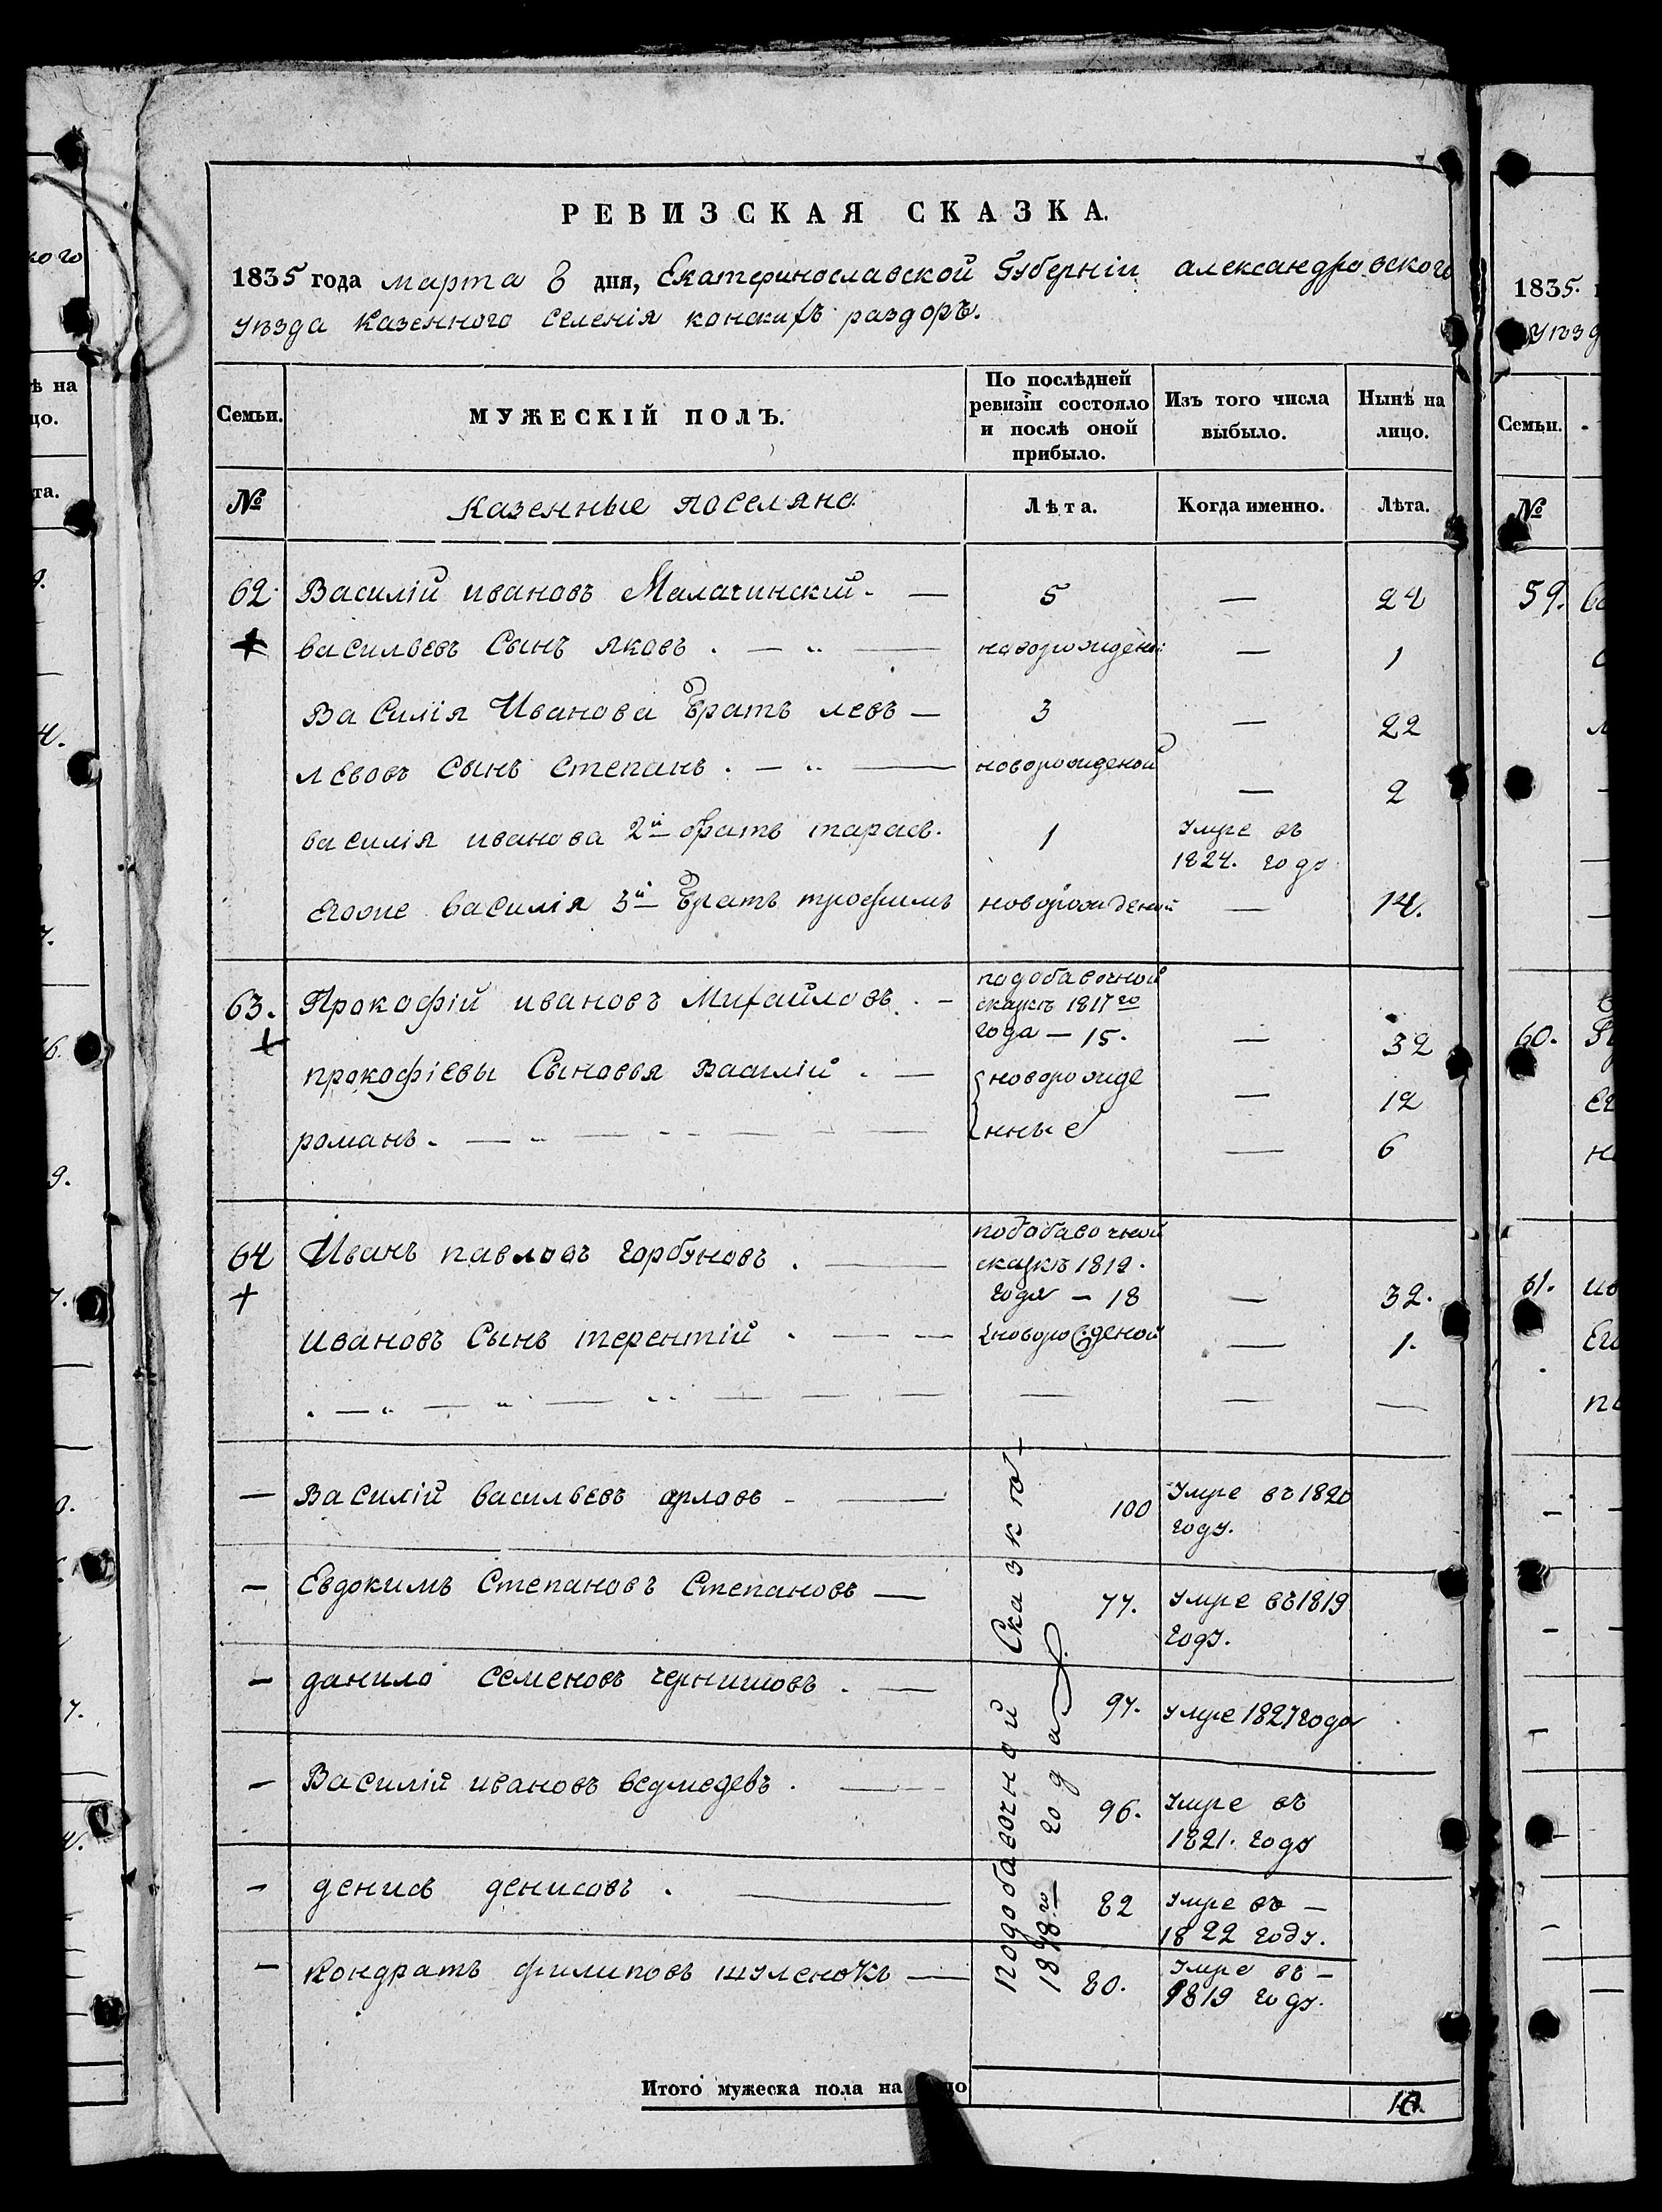 РЕВИЗСКАЯ СКАЗКА.
1835 года марта 8 дня, Екатеринославской Губерніи александровского
уѣзда казенного селенія конскихъ раздоръ.
Семьи. МУЖЕСКІЙ ПОЛЪ. По послѣдней ревизіи состояло и послѣ оной прибыло. Изъ того числа выбыло. Нынѣ на лицо.
№ Казенные поселяне Лѣта. Когда именно. Лѣта.
62. Василій ивановъ Малачинскій. — 5 — 24
+ васильевъ Сынъ яковъ . — новорожденой — 1
Василія Иванова братъ левъ — 3 — 22
Левовъ сынъ степанъ . — новорожденой — 2
василія иванова 2й братъ тарасъ. 1 Умре въ
1824. году
егоже василія 3й братъ трофимъ новорожденый — 14.
63. Прокофій ивановъ Михайловъ . — подобавочной
сказкѣ 1817го
+ года — 15. — 32
прокофіевы Сыновья Василій . — новорожде — 12
романъ . — нные — 6
64 Иванъ павловъ горбуновъ . — подобавочной
сказкѣ 1819.
+ года — 18 — 32.
Ивановъ Сынъ терентій . — новорожденой — 1.
— Василій васильевъ орловъ — 100 Умре въ 1820
году.
— Евдокимъ Степановъ Степановъ — 77. Умре въ 1819
году.
— данило семеновъ чернишовъ . — 97. умре 1827 года
— Василій ивановъ ведмедевъ . — 96. Умре въ
1821. году
— денисъ денисовъ . — 82 Умре въ —
1822 году.
— Кондратъ филиповъ шуленокъ — 80. Умре въ —
1819 году.
подобавочной Сказкю —
1818го года.
Итого мужеска пола на 10.
1835.
Семьи.
№
59.
60.
61.